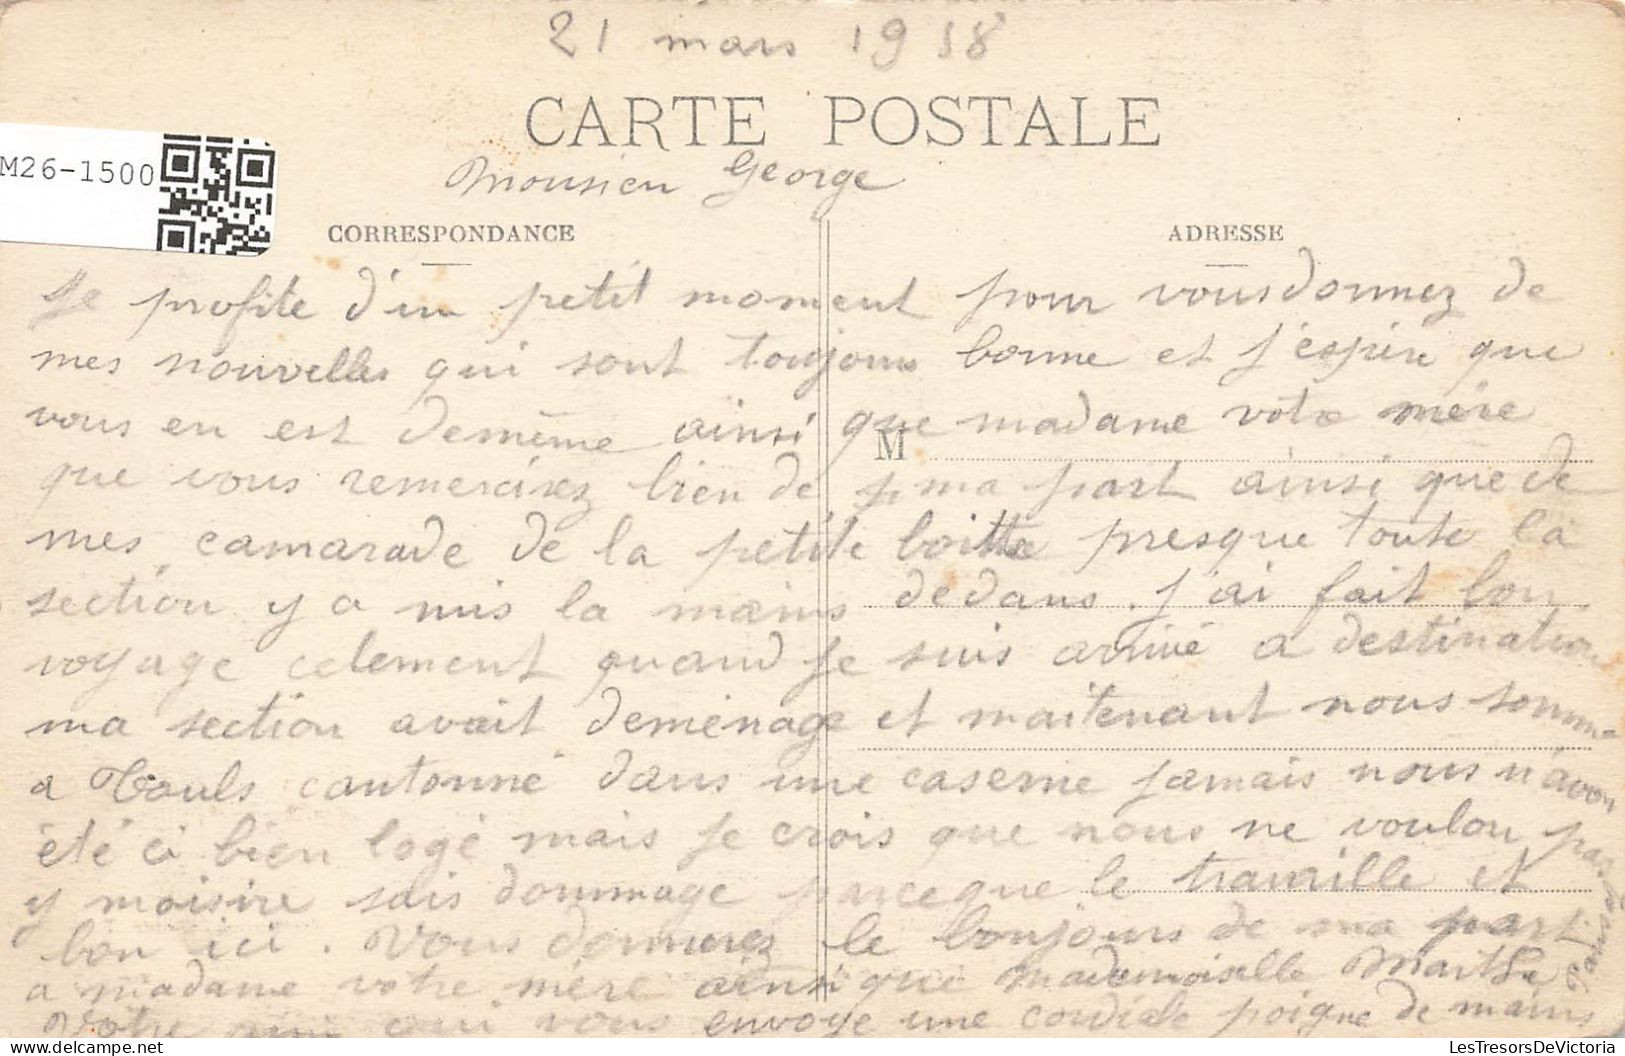 21 mars 1918
CARTE POSTALE
M26-1500
Monsieu George
CORRESPONDANCE
ADRESSE
Je profite d'un petit moment pour vous donnez de
mes nouvelles qui sont toujours bonne et j'espère que
vous en est demême ainsi que madame votre mère
M
que vous remercirez bien de ma part ainsi que de
mes camarade de la petite boitte presque toute la
section y a mis la mains dedans. J'ai fait bon
voyage celement quand je suis arrivé a destination
ma section avait deménage et maitenant nous somme
a Touls cantonné dans une caserne jamais nous n'avon
été ci bien logé mais je crois que nous ne voulon pas
y moisire sais dommage parceque le travaille et
bon ici. Vous donnerez le bonjours de ma part
a madame votre mère ainsi que mademoiselle Marthe
Votre ami qui vous envoye une cordiale poigne de mains
LesTresorsDeVictoria